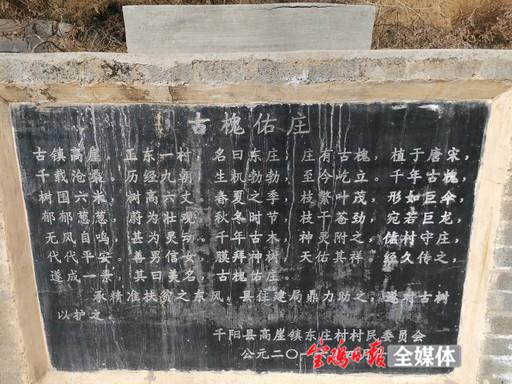 古槐佑庄
古镇高崖，正东一村，名曰东庄；庄有古槐，植于唐宋，
千载沧桑，历经朝，生机勃勃，至今屹立。千年古槐，
树围六米，树高九丈，春夏之季，枝繁叶茂，形如巨伞，
郁郁葱葱，蔚为壮观，秋冬时节，枝干苍劲，宛若巨龙，
无风自鸣，甚为灵动，千年古木，神灵附之，值村守庄，
代代平安。善男信女，膜拜神树，天佑其祥。经久传之，
遂成一景，其曰美名，古槐佑庄。
承精准扶贫之东风，县住建局鼎力助之，遂对古树
以护之。
千阳县高崖镇东庄村村民委员会
公元二〇一
宝鸡日报 全媒体